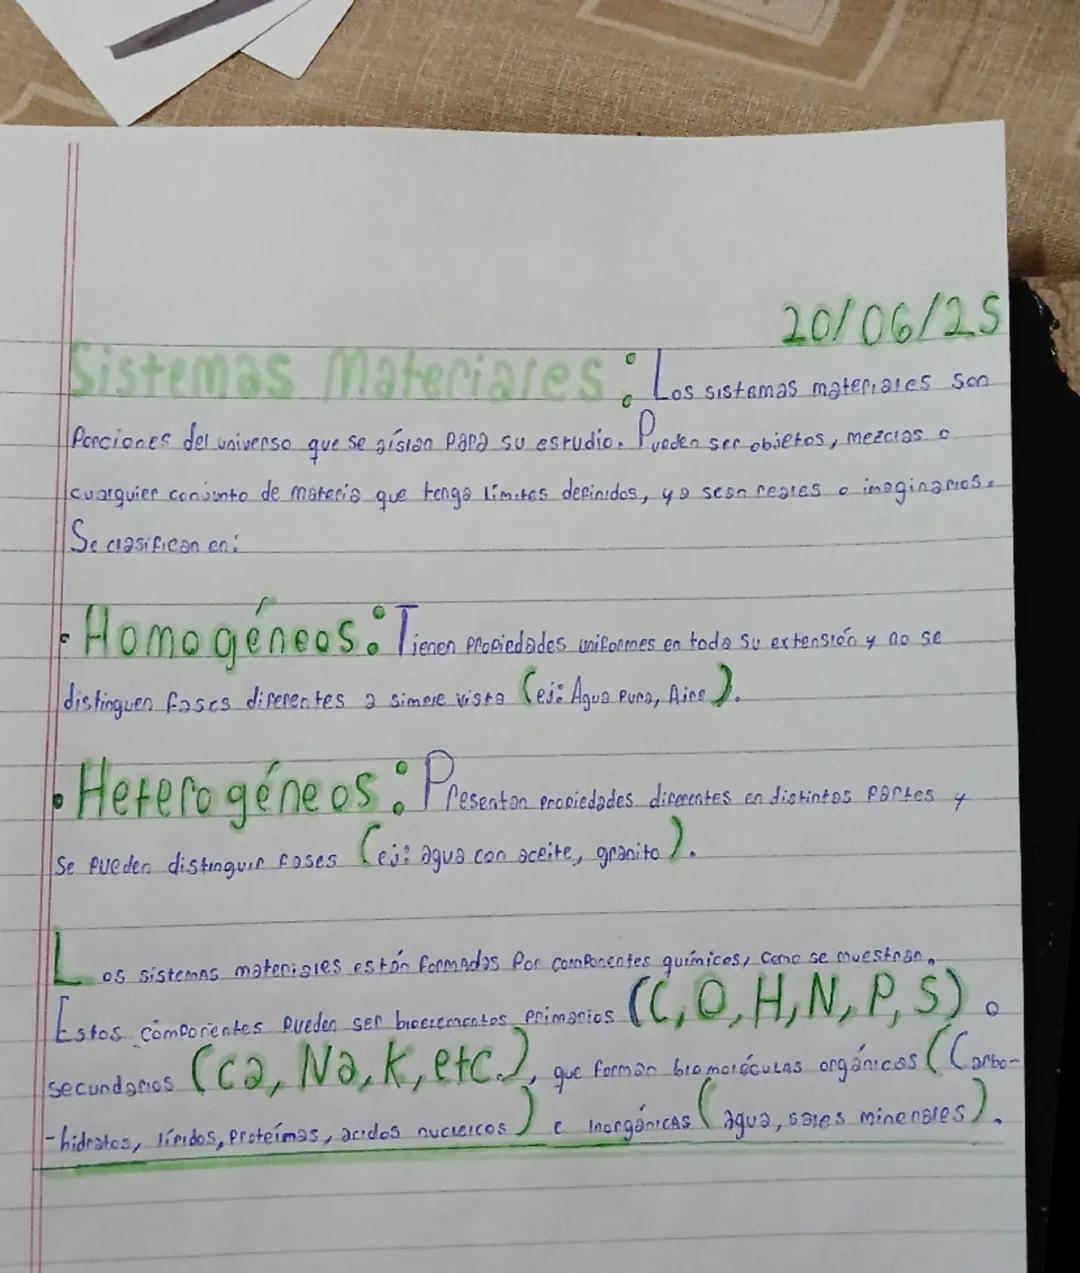 20/06/25
Sistemas Materiales: Los sistemas materiales son
Porciones del universo que se aíslan para su estudio. Pueden ser objetos, mezclas o
cualquier conjunto de materia que tenga límites definidos, ya sean reales o imaginarios.
Se clasifican en:
• Homogéneos: Tienen propiedades uniformes en toda su extensión y no se
distinguen fases diferentes a simple vista (ej: Agua Pura, Aire).
• Heterogéneos: Presentan propiedades diferentes en distintas partes y
se pueden distinguir fases (ej: agua con aceite, granito).
Los sistemas materiales están formados por componentes químicos, como se muestran.
Estos componentes pueden ser bioelementos primarios (C, O, H, N, P, S) o
secundarios (Ca, Na, K, etc.), que forman biomoléculas orgánicas (Carbo-
-hidratos, lípidos, proteínas, ácidos nucleicos) e inorgánicas (agua, sales minerales).